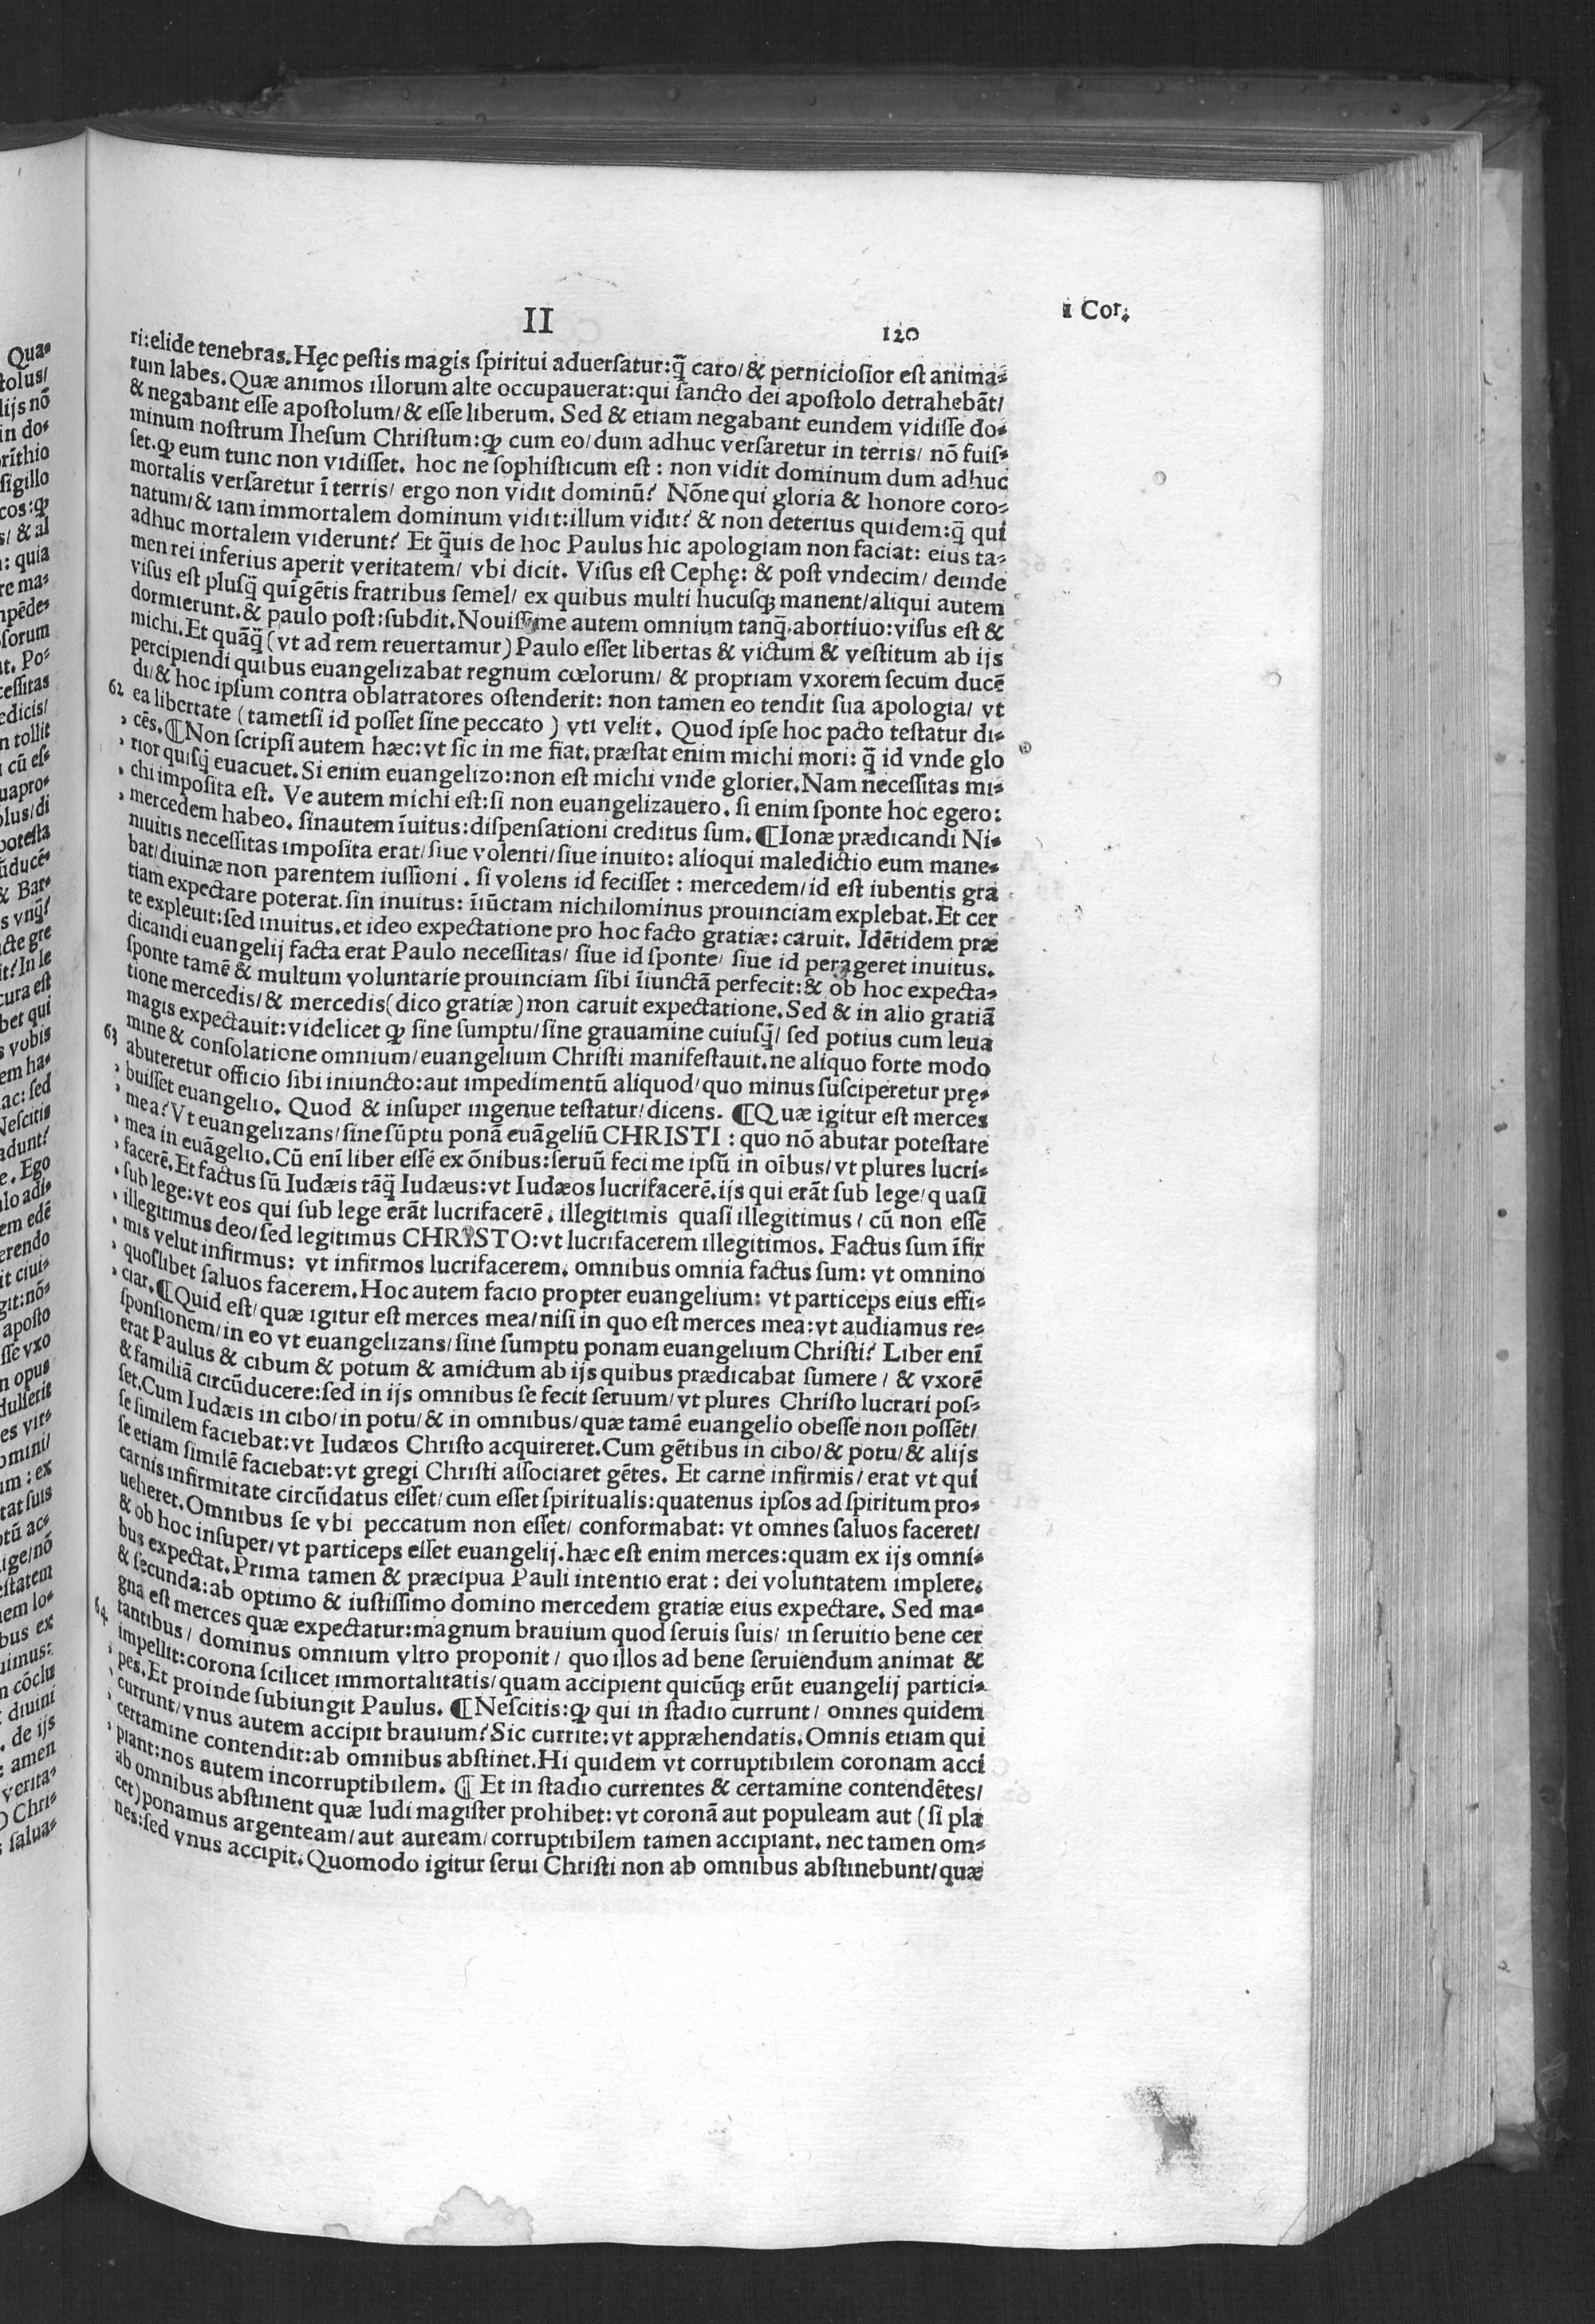 II
120
1 Cor.
ri:elide tenebras.Hęc pestis magis spiritui aduersatur:q̃ caro/& perniciosior est anima-
rum labes.Quæ animos illorum alte occupauerat:qui sancto dei apostolo detrahebãt/
& negabant esse apostolum/& esse liberum. Sed & etiam negabant eundem vidisse do-
minum nostrum Ihesum Christum:ꝙ cum eo/dum adhuc versaretur in terris/ nõ fuis-
set.ꝙ eum tunc non vidisset. hoc ne sophisticum est: non vidit dominum dum adhuc
mortalis versaretur ĩ terris/ ergo non vidit dominũ? Nõne qui gloria & honore coro-
natum/& iam immortalem dominum vidit:illum vidit? & non deterius quidem:q̃ qui
adhuc mortalem viderunt? Et q̃uis de hoc Paulus hic apologiam non faciat: eius ta-
men rei inferius aperit veritatem/ vbi dicit. Visus est Cephę: & post vndecim/ deinde
visus est plusq̃ quĩgẽtis fratribus semel/ ex quibus multi hucusqꝫ manent/aliqui autem
dormierunt.& paulo post:subdit.Nouissime autem omnium tanq̃ abortiuo:visus est &
michi.Et quãq̃ (vt ad rem reuertamur) Paulo esset libertas & victum & vestitum ab ijs
percipiendi quibus euangelizabat regnum cœlorum/ & propriam vxorem secum ducẽ
di/& hoc ipsum contra oblatratores ostenderit: non tamen eo tendit sua apologia/ vt
62 ea libertate (tametsi id posset sine peccato) vti velit. Quod ipse hoc pacto testatur di-
, cẽs.¶Non scripsi autem hæc:vt sic in me fiat.præstat enim michi mori: q̃ id vnde glo
, rior quisq̃ euacuet.Si enim euangelizo:non est michi vnde glorier.Nam necessitas mi-
, chi imposita est. Ve autem michi est:si non euangelizauero. si enim sponte hoc egero:
, mercedem habeo. sinautem ĩuitus:dispensationi creditus sum.¶Ionæ prædicandi Ni-
niuitis necessitas imposita erat/siue volenti/siue inuito: alioqui maledictio eum mane-
bat/diuinæ non parentem iussioni. si volens id fecisset: mercedem/id est iubentis gra
tiam expectare poterat.sin inuitus: ĩiũctam nichilominus prouinciam explebat.Et cer
te expleuit:sed inuitus.et ideo expectatione pro hoc facto gratiæ: caruit. Idẽtidem præ
dicandi euangelij facta erat Paulo necessitas/ siue id sponte/ siue id perageret inuitus.
sponte tamẽ & multum voluntarie prouinciam sibi ĩiunctã perfecit:& ob hoc expecta-
tione mercedis/& mercedis(dico gratiæ)non caruit expectatione.Sed & in alio gratiã
magis expectauit:videlicet ꝙ sine sumptu/sine grauamine cuiusq̃/ sed potius cum leua
63 mine & consolatione omnium/euangelium Christi manifestauit.ne aliquo forte modo
abuteretur officio sibi iniuncto:aut impedimentũ aliquod/quo minus susciperetur prę-
, buisset euangelio. Quod & insuper ingenue testatur/dicens. ¶Quæ igitur est merces
, mea?Vt euangelizans/sine sũptu ponã euãgeliũ CHRISTI: quo nõ abutar potestate
, mea in euãgelio.Cũ enĩ liber essẽ ex õnibus:seruũ feci me ipsũ in oĩbus/vt plures lucri-
, facerẽ.Et factus sũ Iudæis tãq̃ Iudæus:vt Iudæos lucrifacerẽ.ijs qui erãt sub lege/quasi
, sub lege:vt eos qui sub lege erãt lucrifacerẽ. illegitimis quasi illegitimus/ cũ non essẽ
, illegitimus deo/sed legitimus CHRISTO:vt lucrifacerem illegitimos. Factus sum ĩfir
, mis velut infirmus: vt infirmos lucrifacerem. omnibus omnia factus sum: vt omnino
, quoslibet saluos facerem.Hoc autem facio propter euangelium: vt particeps eius effi-
, ciar.¶Quid est/quæ igitur est merces mea/nisi in quo est merces mea:vt audiamus re-
sponsionem/in eo vt euangelizans/sine sumptu ponam euangelium Christi? Liber enĩ
erat Paulus & cibum & potum & amictum ab ijs quibus prædicabat sumere/ & vxorẽ
& familiã circũducere:sed in ijs omnibus se fecit seruum/vt plures Christo lucrari pos-
set.Cum Iudæis in cibo/in potu/& in omnibus/quæ tamẽ euangelio obesse non possẽt/
se similem faciebat:vt Iudæos Christo acquireret.Cum gẽtibus in cibo/& potu/& alijs
se etiam similẽ faciebat:vt gregi Christi associaret gẽtes. Et carne infirmis/erat vt qui
carnis infirmitate circũdatus esset/cum esset spiritualis:quatenus ipsos ad spiritum pro-
ueheret.Omnibus se vbi peccatum non esset/ conformabat: vt omnes saluos faceret/
& ob hoc insuper/vt particeps esset euangelij.hæc est enim merces:quam ex ijs omni-
bus expectat.Prima tamen & præcipua Pauli intentio erat: dei voluntatem implere.
& secunda:ab optimo & iustissimo domino mercedem gratiæ eius expectare. Sed ma-
gna est merces quæ expectatur:magnum brauium quod seruis suis/ in seruitio bene cer
64 tantibus/ dominus omnium vltro proponit/ quo illos ad bene seruiendum animat &
impellit:corona scilicet immortalitatis/quam accipient quicũqꝫ erũt euangelij partici-
, pes.Et proinde subiungit Paulus. ¶Nescitis:ꝙ qui in stadio currunt/ omnes quidem
, currunt/vnus autem accipit brauium?Sic currite:vt appræhendatis.Omnis etiam qui
, certamine contendit:ab omnibus abstinet.Hi quidem vt corruptibilem coronam acci
, piant:nos autem incorruptibilem. ¶ Et in stadio currentes & certamine contendẽtes/
ab omnibus abstinent quæ ludi magister prohibet: vt coronã aut populeam aut (si pla
cet)ponamus argenteam/aut auream/corruptibilem tamen accipiant. nec tamen om-
nes:sed vnus accipit.Quomodo igitur serui Christi non ab omnibus abstinebunt/quæ